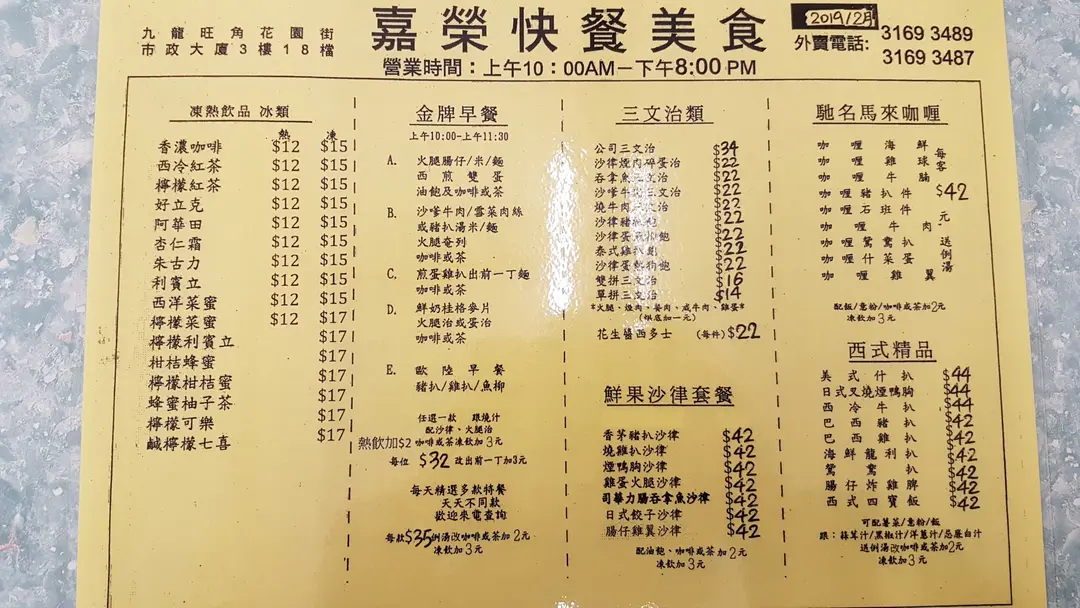 九龍旺角花園街
市政大廈3樓18檔
嘉榮快餐美食
營業時間：上午10：00AM－下午8:00 PM
2019/2月
外賣電話: 3169 3489
3169 3487
凍熱飲品 冰類
熱 凍
香濃咖啡 $12 $15
西冷紅茶 $12 $15
檸檬紅茶 $12 $15
好立克 $12 $15
阿華田 $12 $15
杏仁霜 $12 $15
朱古力 $12 $15
利賓立 $12 $15
西洋菜蜜 $12 $15
檸檬菜蜜 $12 $17
檸檬利賓立 $17
柑桔蜂蜜 $17
檸檬柑桔蜜 $17
蜂蜜柚子茶 $17
檸檬可樂 $17
鹹檸檬七喜 $17
金牌早餐
上午10:00-上午11:30
A. 火腿腸仔/米/麵
西煎雙蛋
油飽及咖啡或茶
B. 沙嗲牛肉/雪菜肉絲
或豬扒湯米/麵
火腿奄列
咖啡或茶
C. 煎蛋雞扒出前一丁麵
咖啡或茶
D. 鮮奶桂格麥片
火腿治或蛋治
咖啡或茶
E. 歐陸早餐
豬扒/雞扒/魚柳
任選一款 跟燒汁
配沙律、火腿治
熱飲加$2 咖啡或茶凍飲加3元
每位 $32 改出前一丁加3元
每天精選多款特餐
天天不同款
歡迎來電查詢
每款$35例湯改咖啡或茶加2元
凍飲加3元
三文治類
公司三文治 $34
沙律煙肉碎蛋治 $22
吞拿魚三文治 $22
沙嗲牛肉三文治 $22
燒牛肉三文治 $22
沙律豬扒飽 $22
沙律蛋煎扒飽 $22
泰式雞扒飽 $22
沙律蛋熱狗飽 $22
雙拼三文治 $16
單拼三文治 $14
*火腿、煙肉、餐肉、咸牛肉、雞蛋*
(烘底加一元)
花生醬西多士 (每件) $22
鮮果沙律套餐
香茅豬扒沙律 $42
燒雞扒沙律 $42
煙鴨胸沙律 $42
雞蛋火腿沙律 $42
司華力腸吞拿魚沙律 $42
日式餃子沙律 $42
腸仔雞翼沙律 $42
配油飽、咖啡或茶加2元
凍飲加3元
馳名馬來咖喱
咖喱海鮮
咖喱雞球
咖喱牛腩
咖喱豬扒件
咖喱石班件
咖喱牛肉
咖喱鴛鴦扒
咖喱什菜蛋
咖喱雞翼
每客 $42 元 送例湯
配飯/意粉/咖啡或茶加2元
凍飲加3元
西式精品
美式什扒 $44
日式叉燒煙鴨胸 $44
西冷牛扒 $44
巴西豬扒 $42
巴西雞扒 $42
海鮮龍利扒 $42
鴛鴦扒 $42
腸仔炸雞脾 $42
西式四寶飯 $42
可配薯菜/意粉/飯
跟：蒜茸汁/黑椒汁/洋蔥汁/忌廉白汁
送例湯改咖啡或茶加2元
凍飲加3元